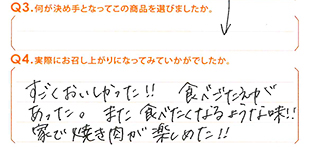 Q3.何が決め手となってこの商品を選びましたか。
Q4.実際にお召し上がりになってみていかがでしたか。
すごくおいしかった!! 食べごたえが
あった。また食べたくなるような味!!
家で焼き肉が楽しめた!!